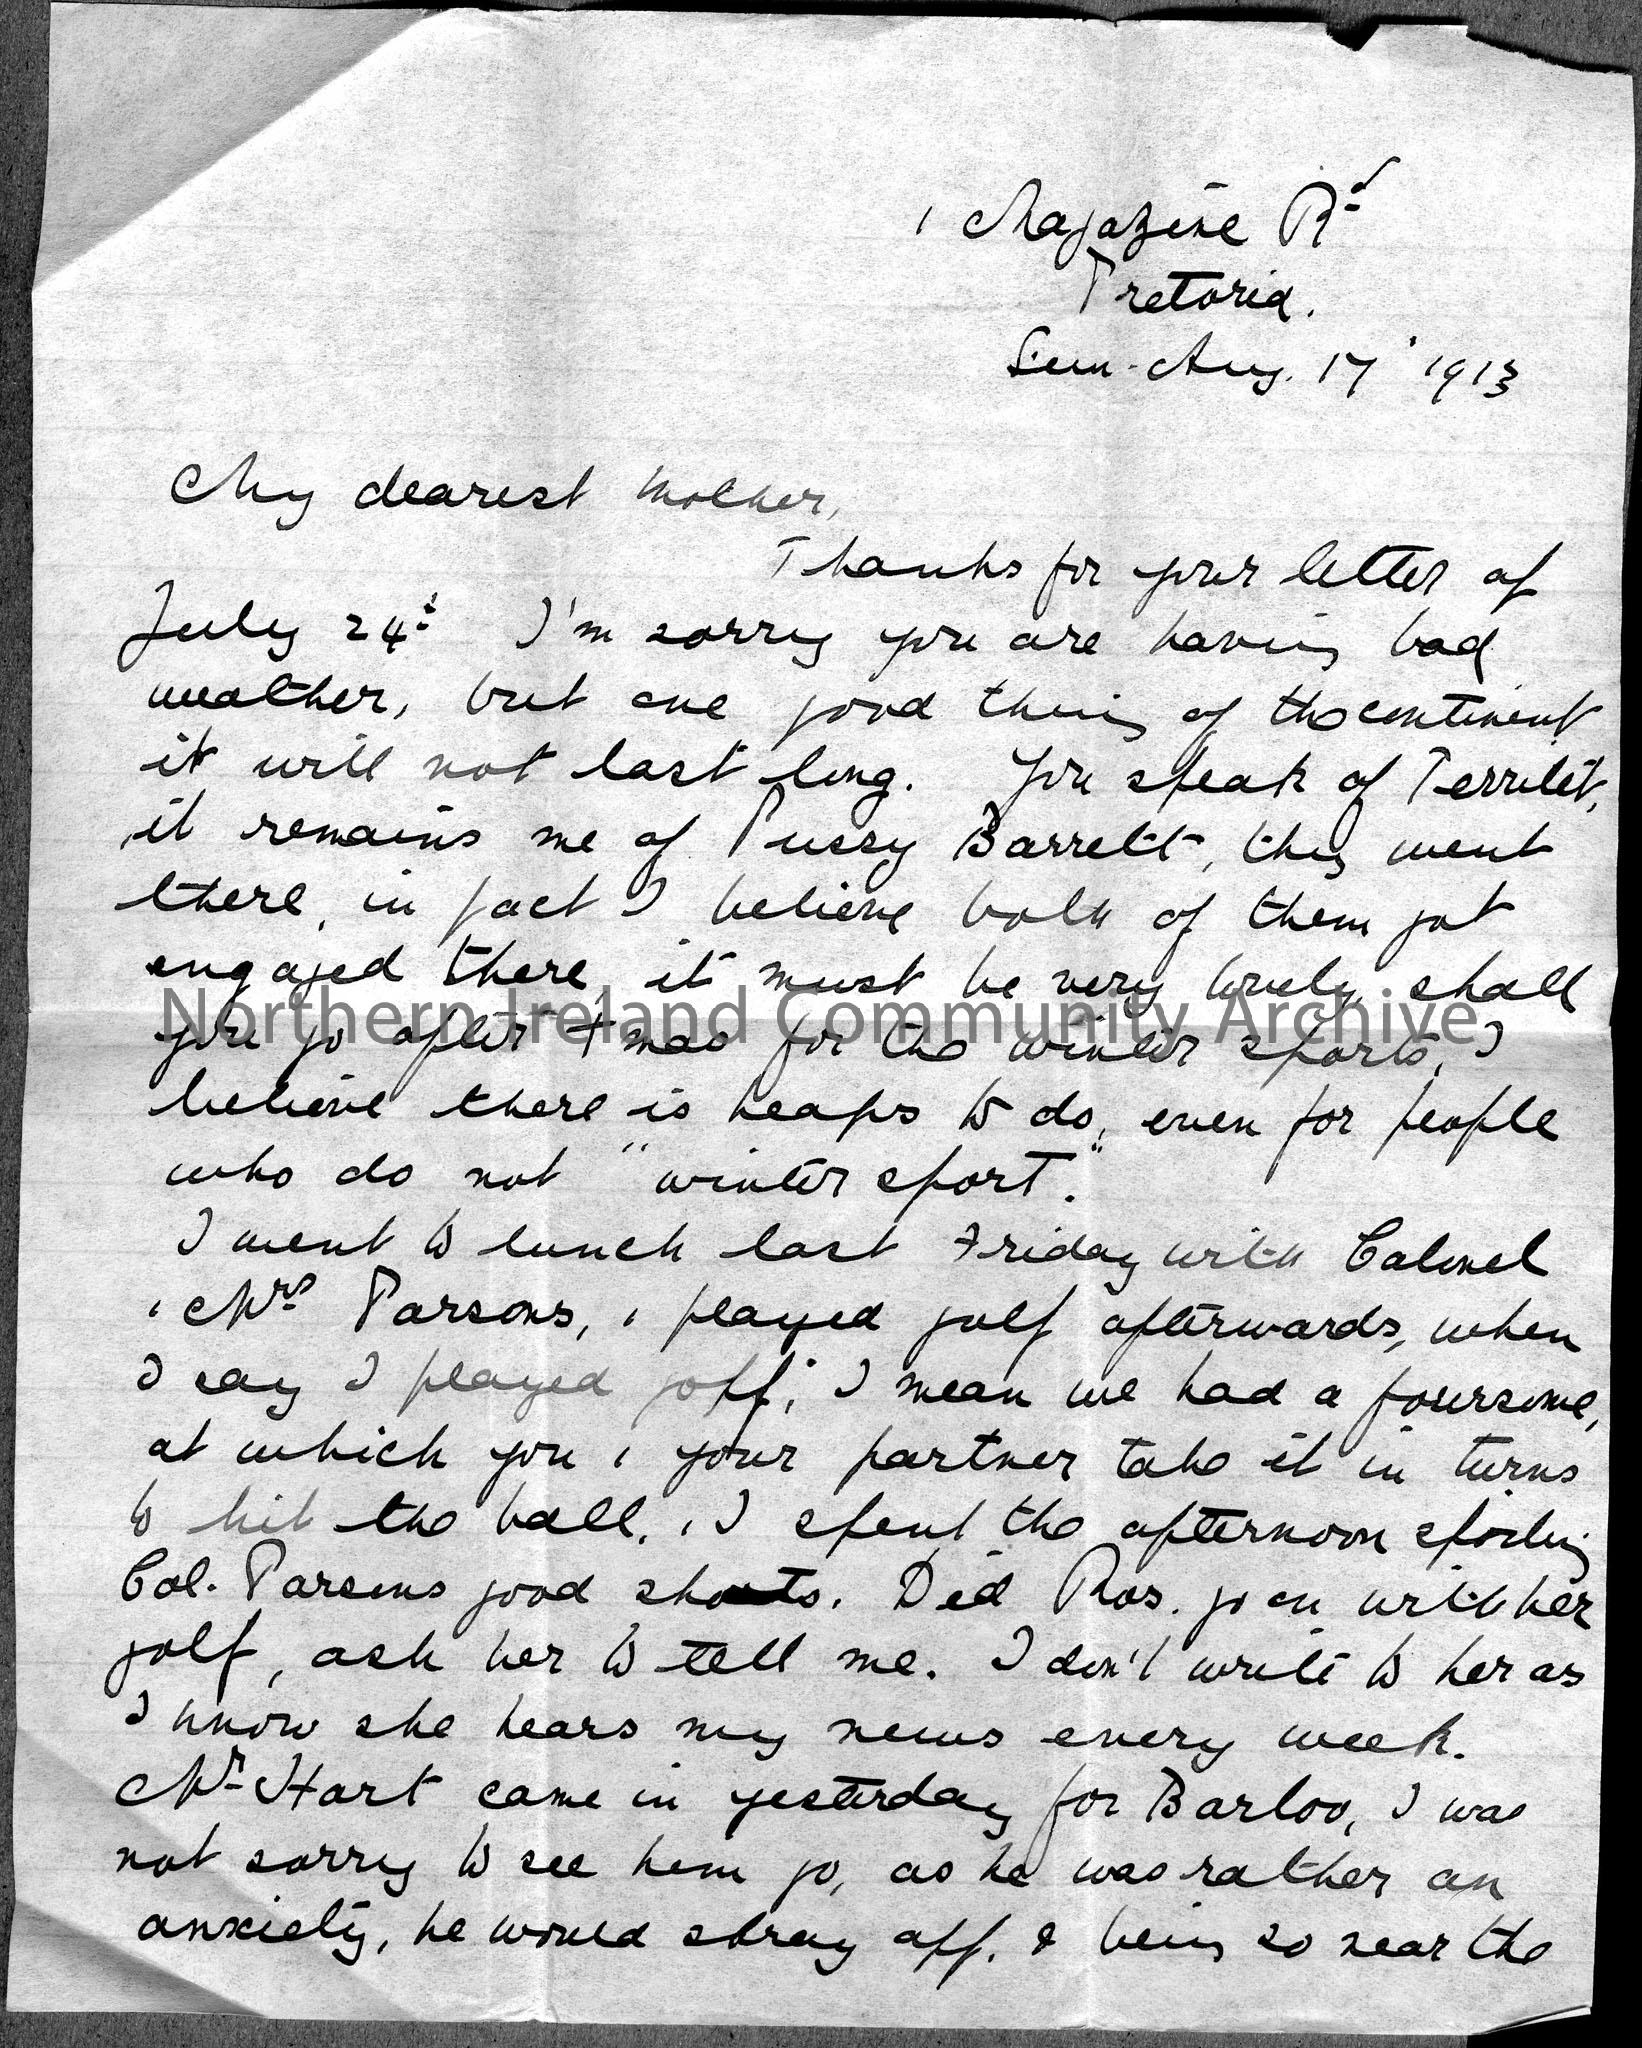 1 Magazine Rd
Pretoria.
Sun. Aug. 17' 1913
My dearest Mother,
Thanks for your letter of
July 24t I'm sorry you are having bad
weather, but one good thing of the continent
it will not last long. You speak of Territet,
it remains me of Pussy Barrett, they went
there, in fact I believe both of them got
engaged there, it must be very lovely, shall
Northern Ireland Community Archive
you go after Xmas for the winter sports, I
believe there is heaps to do, even for people
who do not "winter sport".
I went to lunch last Friday with Colonel
& Mrs Parsons, & played golf afterwards, when
I say I played goff, I mean we had a foursome,
at which you & your partner take it in turns
to hit the ball, & I spent the afternoon spoiling
Col. Parsons good shots. Did Ros. go on with her
golf, ask her to tell me. I don't write to her as
I know she hears my news every week.
Mr Hart came in yesterday for Barloo, I was
not sorry to see him go, as he was rather an
anxiety, he would stray off, & being so near the